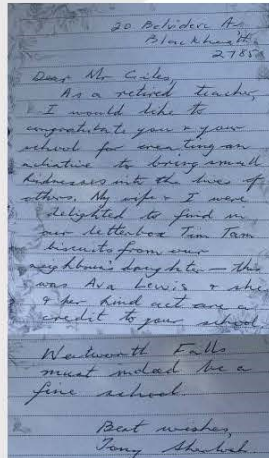 20 Belvidere Av
Blackheath
2785
Dear Mr Giles,
As a retired teacher,
I would like to
congratulate you & your
school for creating an
initiative to bring small
kindnesses into the lives of
others. My wife & I were
delighted to find in
our letterbox Tim Tam
biscuits from our
neighbour's daughter — this
was Ava Lewis & she
& her kind act are a
credit to your school.
Wentworth Falls
must indeed be a
fine school.
Best wishes,
Tony